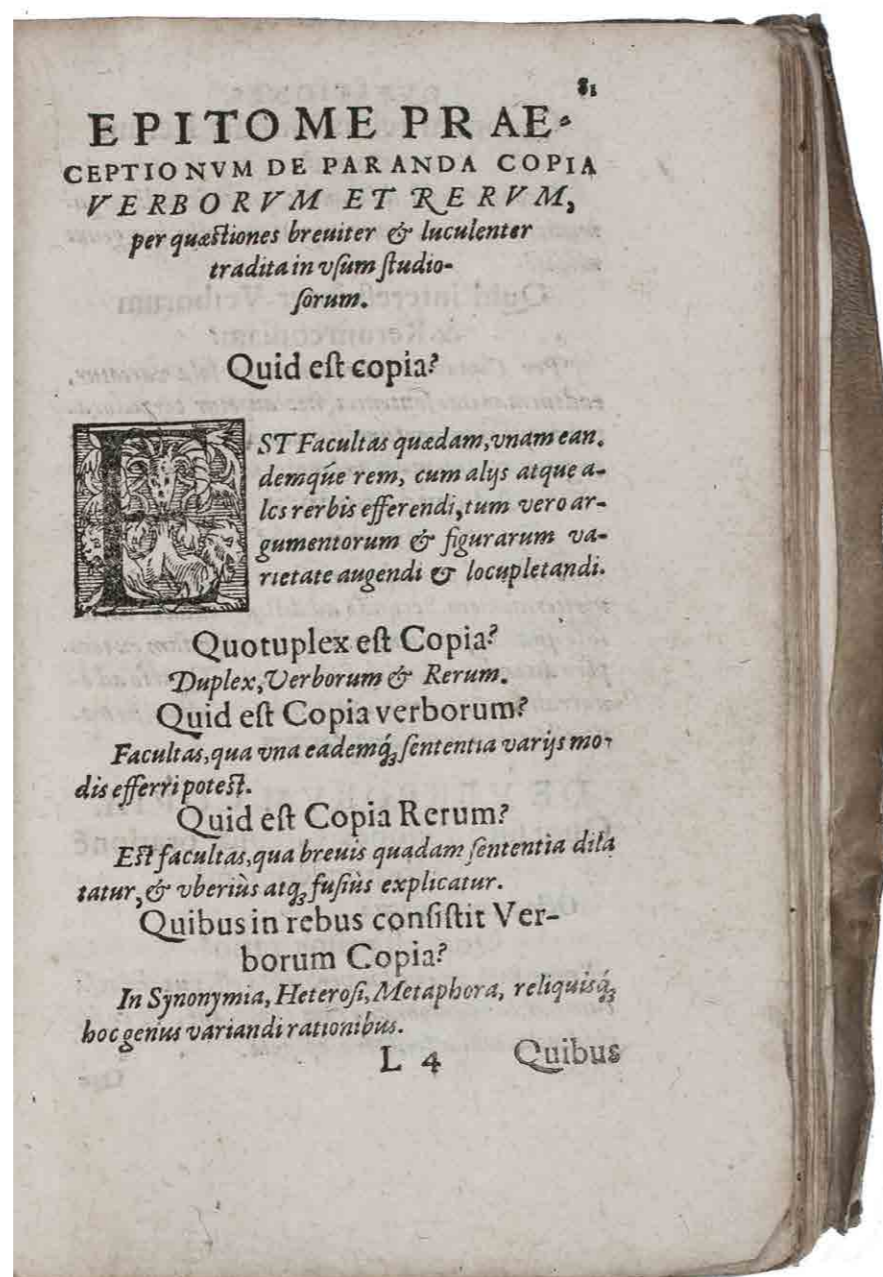 81
EPITOME PRAE-
CEPTIONVM DE PARANDA COPIA
VERBORVM ET RERVM,
per quæstiones breuiter & luculenter
tradita in vſum ſtudio-
ſorum.
Quid eſt copia?
EST Facultas quædam, vnam ean.
demq́ue rem, cum alijs atque a-
lcs rerbis efferendi, tum vero ar-
gumentorum & figurarum va-
rietate augendi & locupletandi.
Quotuplex eſt Copia?
Duplex, Verborum & Rerum.
Quid eſt Copia verborum?
Facultas, qua vna eademq́ꝫ ſententia varijs mo-
dis efferri poteſt.
Quid eſt Copia Rerum?
Eſt facultas, qua breuis quadam ſententia dila
tatur, & vberiùs atqꝫ fuſiùs explicatur.
Quibus in rebus conſiſtit Ver-
borum Copia?
In Synonymia, Heteroſi, Metaphora, reliquisq́ꝫ
hoc genus variandi rationibus.
L 4 Quibus